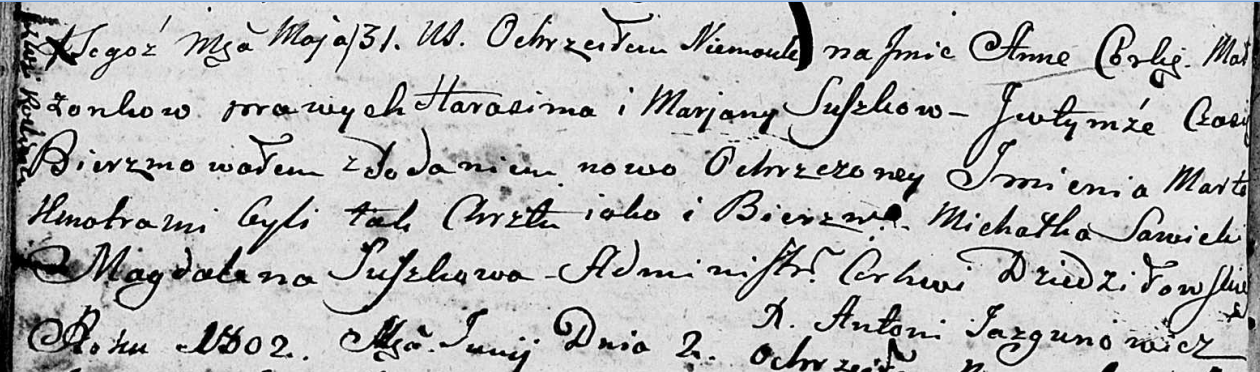 Tegoż Mca Maja 31. V.S. Ochrzciłem Niemowlę na Jmie Anne Corkę. Mał
żonkow prawych Harasima i Marjany Suszkow – Jwtymże Czasie
Bierzmowałem z dodaniem nowo Ochrzczoney Jmienia Marta
Kmotrami byli tak Chrztu iako i Bierzm. Michałka Sawicki
Magdalena Suszkowa – Administr Cerkwi Dziedziłow
X. Antoni Jazgunowicz
Roku 1802. Mca. Junij Dnia 2.